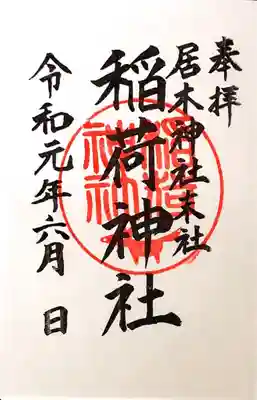 奉拝
居木神社末社
稲荷神社
令和元年六月 日
稲荷神社